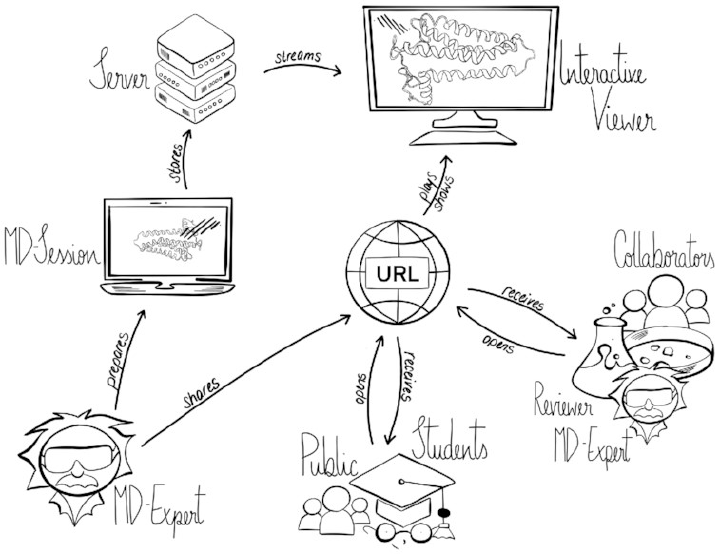 Server
streams
Interactive
Viewer
stores
plays
shows
MD-Session
URL
Collaborators
receives
opens
prepares
shares
opens
receives
Reviewer
MD-Expert
Public
Students
MD-Expert